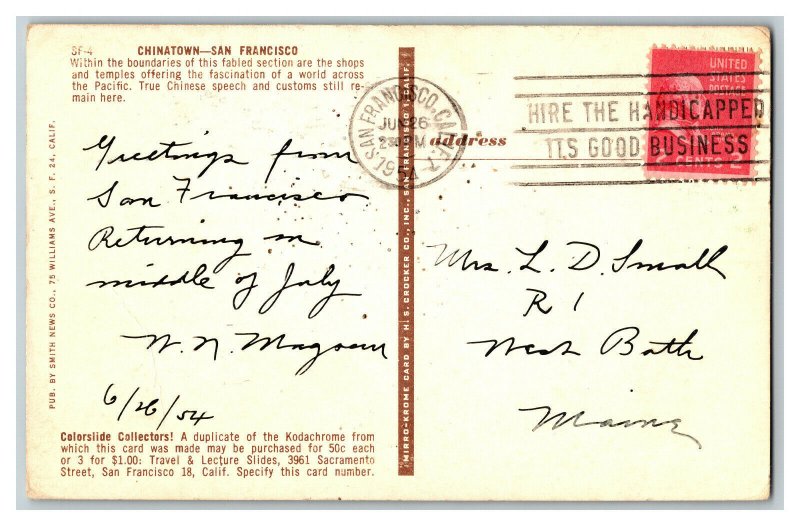 SF-4 CHINATOWN—SAN FRANCISCO
Within the boundaries of this fabled section are the shops
and temples offering the fascination of a world across
the Pacific. True Chinese speech and customs still re-
main here.
Greetings from
San Francisco
Returning in
middle of July
W. N. Magoun
6/26/54
Colorslide Collectors! A duplicate of the Kodachrome from
which this card was made may be purchased for 50c each
or 3 for $1.00: Travel & Lecture Slides, 3961 Sacramento
Street, San Francisco 18, Calif. Specify this card number.
PUB. BY SMITH NEWS CO., 75 WILLIAMS AVE., S. F. 24, CALIF.
MIRRO-KROME CARD BY H. S. CROCKER CO., INC., SAN FRANCISCO 1, CALIF.
SAN FRANCISCO, CALIF.
JUN 26
1954
address
HIRE THE HANDICAPPED
ITS GOOD BUSINESS
UNITED
STATES
POSTAGE
CENTS 2
Mrs. L. D. Small
R 1
West Bath
Maine